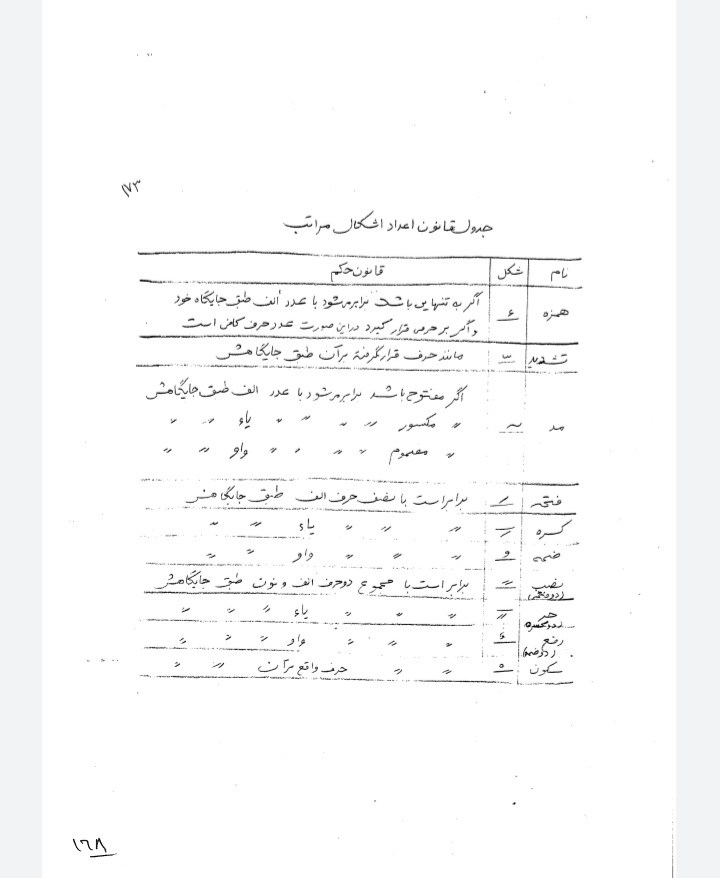 ۱۷۳
جدول قانون اعداد اشکال مراتب
نام شکل قانون حکم
همزه ء اگر به تنهایی باشد برابر میشود با عدد الف طبق جایگاه خود
و اگر بر حرفی قرار گیرد در این صورت عدد حرف کافی است
تشدید ّ مانند حرف قرار گرفته بر آن طبق جایگاهش
اگر مفتوح باشد برابر میشود با عدد الف طبق جایگاهش
مد ~ " مکسور " " " " یاء " "
" مضموم " " " " واو " "
فتحه َ برابر است با نصف حرف الف طبق جایگاهش
کسره ِ " " " " یاء " "
ضمه ُ " " " " واو " "
نصب ً برابر است با مجموع دو حرف الف و نون طبق جایگاهش
(دو فتحه)
جر ٍ " " " یاء " " "
(دو کسره)
رفع ٌ " " " واو " " "
(دو ضمه)
سکون ْ " " " حرف واقع بر آن " "
۱۶۸